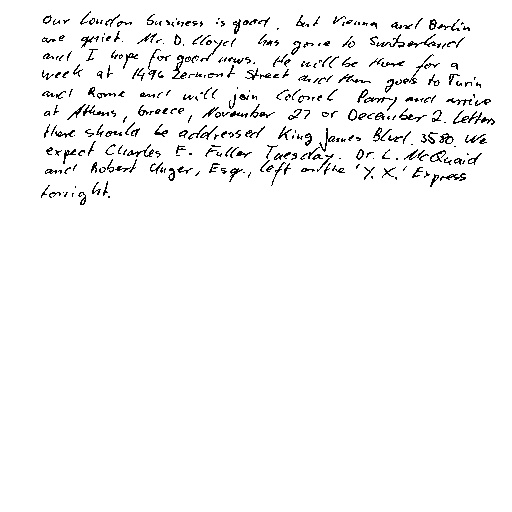 Our London business is good, but Vienna and Berlin
are quiet. Mr. D. Lloyd has gone to Switzerland
and I hope for good news. He will be there for a
week at 1496 Zermont Street and then goes to Turin
and Rome and will join Colonel Parry and arrive
at Athens, Greece, November 27 or December 2. Letters
there should be addressed King James Blvd. 3580. We
expect Charles E. Fuller Tuesday. Dr. L. McQuaid
and Robert Unger, Esq., left on the 'Y.X.' Express
tonight.